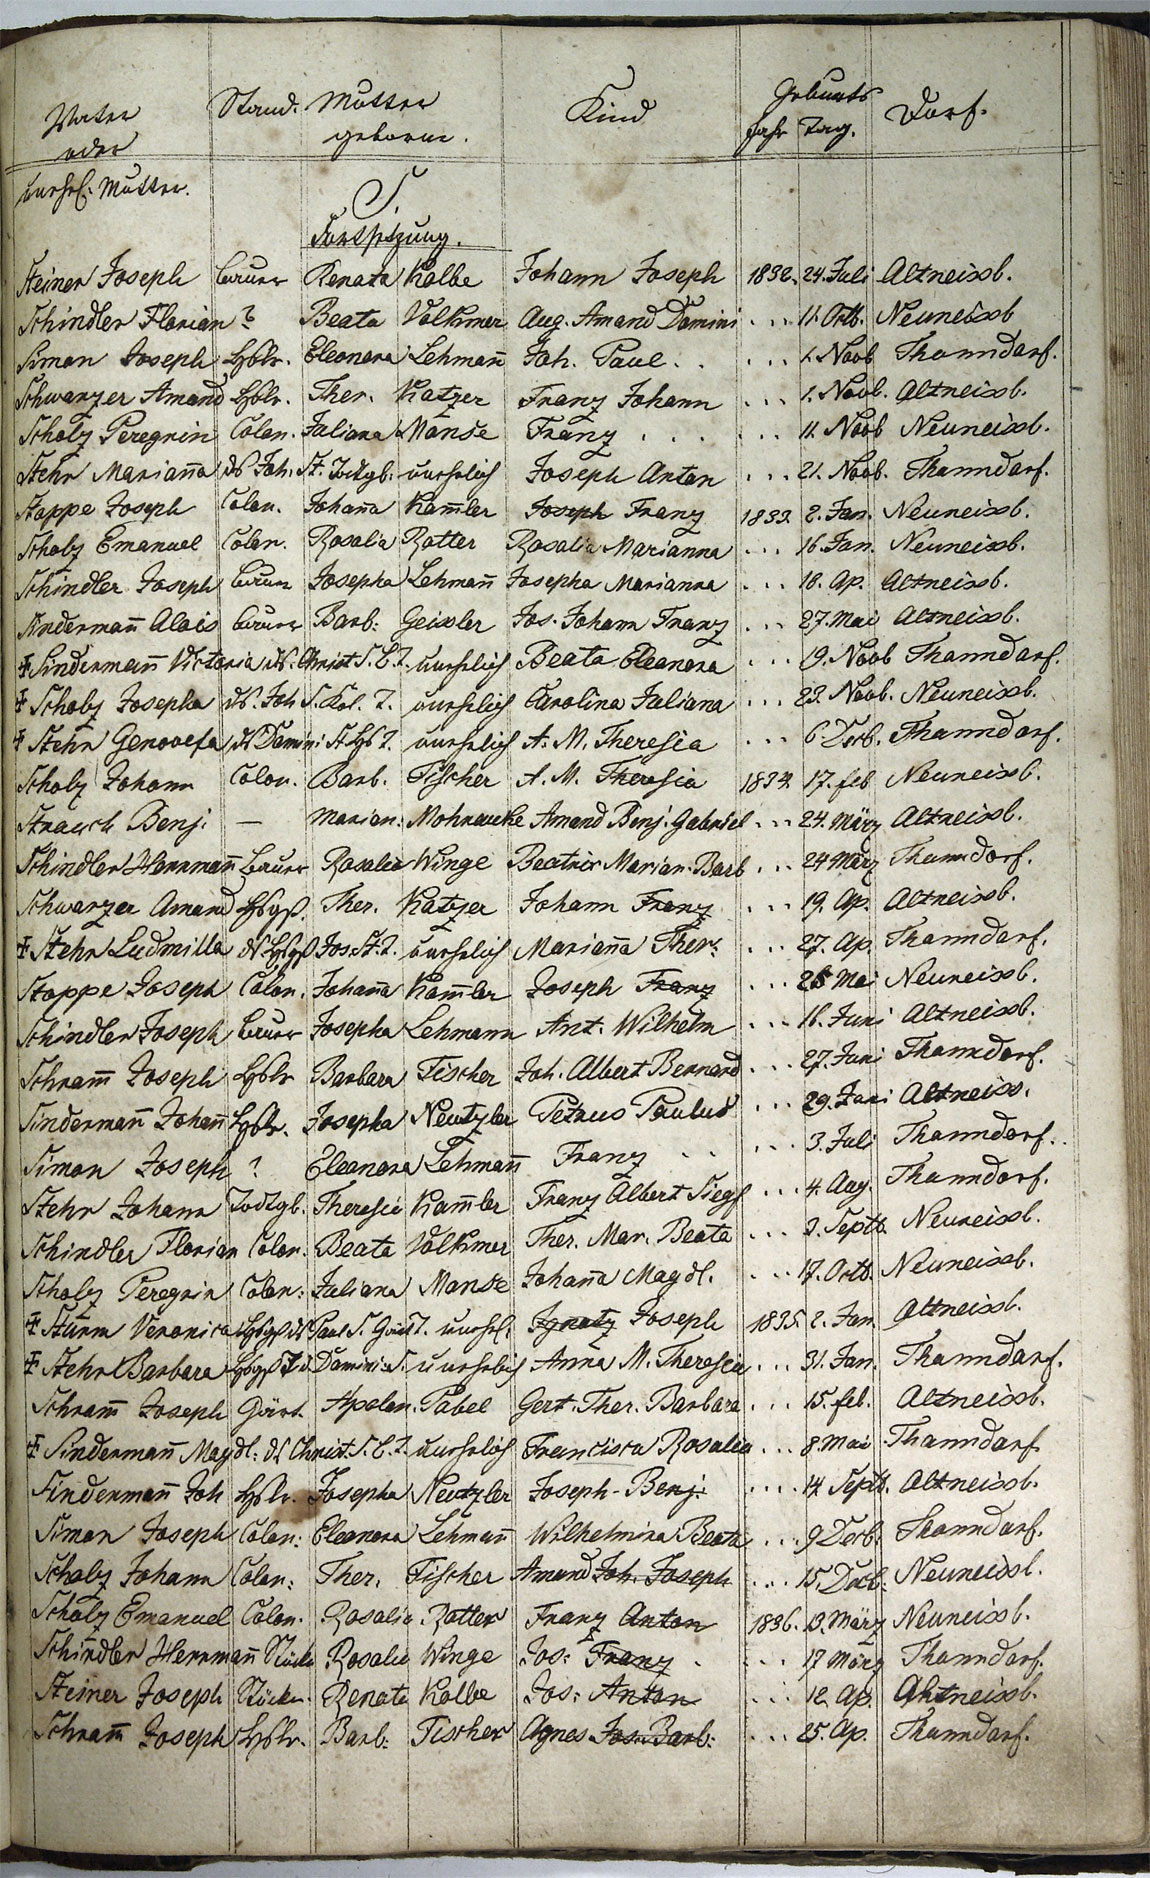 Vater Stand. Mutter Kind Geburts Dorf.
oder geborne. Jahr Tag.
unehel: Mutter. S.
Fortsetzung.
Steiner Joseph Bauer Renata Kolbe Johann Joseph 1832. 24. Juli Altneissb.
Schindler Florian ? Beata Volkmer Aug. Amand Domini ... 11. Octb. Neuneissb
Simon Joseph Hslr. Eleonora Lehmañ Joh. Paul. . ... 1. Novb Thanndorf.
Schwarzer Amand Hslr. Ther. Katzer Franz Johann ... 1. Novb. Altneissb.
Scholz Peregrin Colon. Juliana Manse Franz . . . ... 11. Novb Neuneissb.
Stehr Mariaña ds Joh. St. Todtgb. unehelich Joseph Anton ... 21. Novb. Thanndorf.
Stappe Joseph Colon. Johaña Kam̃ler Joseph Franz 1833. 2. Jan. Neuneissb.
Scholz Emanuel Colon. Rosalia Rotter Rosalia Marianna ... 16. Jan. Neuneissb.
Schindler Joseph Bauer Josepha Lehmañ Josepha Marianna ... 18. Ap. Altneissb.
Sindermañ Alois Bauer Barb: Geissler Jos. Johann Franz ... 27. Mai Altneissb.
Sindermañ Victoria ds. Christ. S. T. unehelich Beata Eleonora ... 19. Novb Thanndorf.
Scholz Josepha ds. Joh S. Kol. T. unehelich Carolina Juliana ... 23. Novb. Neuneissb.
Stehr Genovefa ds Domini St T. unehelich A. M. Theresia ... 6 Decb. Thanndorf.
Scholz Johann Colon. Barb. Fischer A. M. Theresia 1834. 17. feb Neuneissb.
Strauch Benj. — Marian: Amand Benj. Gabriel ... 24. März Altneissb.
Schindler Herrmañ Bauer Rosalia Winge Beatrix Marian. Barb ... 24 März Thanndorf.
Schwarzer Amand Ther. Katzer Johann Franz ... 19. Ap. Altneissb.
Stehr Ludmilla ds Jos. St. T. unehelich Mariaña Ther: ... 27. Ap. Thanndorf.
Stappe Joseph Colon. Johaña Kam̃ler Joseph Franz ... Mai Neuneissb.
Schindler Joseph Bauer Josepha Lehmann Ant. Wilhelm ... 16. Juni Altneissb.
Schram̃ Joseph Hslr Barbara Fischer Joh. Albert Bernard ... 27. Juni Thanndorf.
Sindermañ Johañ Hslr. Josepha Neutzler Petrus Paulus ... 29. Juni Altneiss.
Simon Joseph ? Eleonora Lehmañ Franz . . ... 3. Juli Thanndorf.
Stehr Johann Todtgb. Theresia Kam̃ler Franz Albert Siegf ... 4. Aug. Thanndorf.
Schindler Florian Colon: Beata Volkmer Ther. Mar. Beata ... 3. Septb. Neuneissb.
Scholz Peregrin Colon: Juliana Manse Johaña Magdl. ... 17. Octb. Neuneissb.
Sturm Veronica ds Paul S. T. unehl: Ignatz Joseph 1835. 2. Jan. Altneissb.
Stehr Barbara Domini: S. unehelich Anna M. Theresia ... 31. Jan. Thanndorf.
Schram̃ Joseph Gärt. Apolon. Pabel Gert. Ther. Barbara ... 15. feb. Altneissb.
Sindermañ Magdl: ds Christ. S. T. unehelich Francisca Rosalia ... 8. Mai Thanndorf
Sindermañ Joh Hslr. Josepha Neutzler Joseph Benj: .... 14. Septb. Altneissb.
Simon Joseph Colon: Eleonora Lehmañ Wilhelmina Beata ... 9 Decb: Thanndorf.
Scholz Johann Colon: Ther. Fischer Amand Joh. Joseph ... 15. Decb: Neuneissb.
Scholz Emanuel Colon. Rosalia Rotter Franz Anton 1836. 13. März Neuneissb.
Schindler Herrmañ Stückm Rosalia Winge Jos: Franz . ... 17 März Thanndorf.
Steiner Joseph Stückm. Renata Kolbe Jos: Anton ... 12. Ap. Altneissb.
Schram̃ Joseph Hslr. Barb: Fischer Agnes Jos. Barb: ... 25. Ap. Thanndorf.